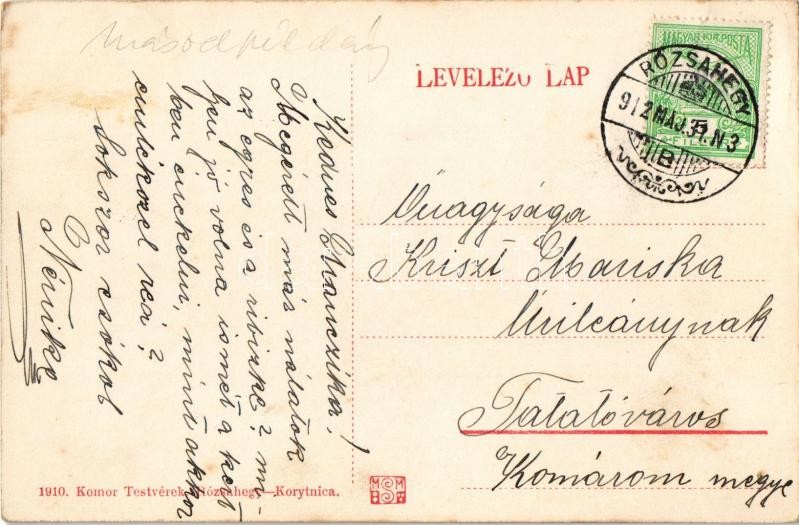 másodpéldány
LEVELEZŐ LAP
MAGYAR KIR. POSTA
RÓZSAHEGY
912 MÁJ. 31. N3
B
Kedves Mariczika!
Megérett más nálatok
az egres és a ribizke? mi-
lyen jó volna ismét a kert
ben enekelni, mint akkor
emlékszel reá?
Sokszor csókol
Nénike
Őnagysága
Kriszt Mariska
Úrileánynak
Tatatóváros
Komárom megye
1910. Komor Testvérek, Rózsahegy—Korytnica.